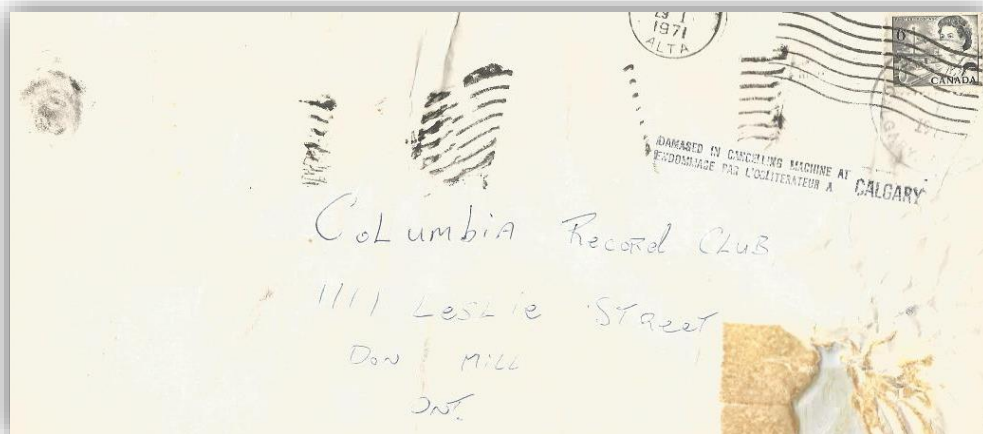 29 I
1971
ALTA
6
CANADA
DAMAGED IN CANCELLING MACHINE AT
ENDOMMAGE PAR L'OBLITERATEUR A CALGARY
Columbia Record Club
1111 Leslie Street
Don Mill
Ont.